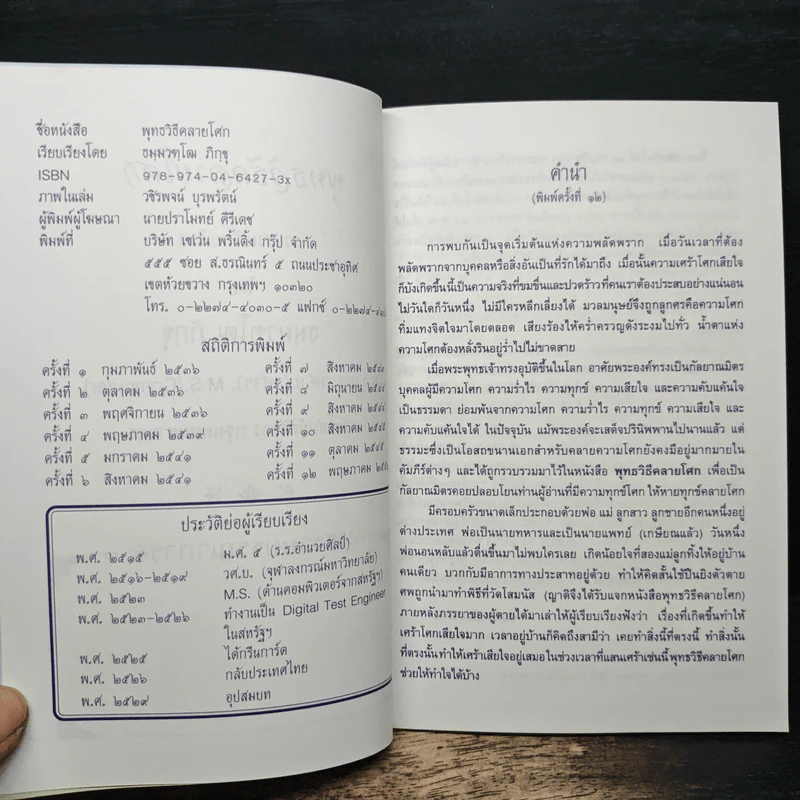 ชื่อหนังสือ พุทธวิธีคลายโศก
เรียบเรียงโดย ธมฺมวฑฺโฒ ภิกฺขุ
ISBN 978-974-04-6427-3x
ภาพในเล่ม วชิรพจน์ บุรพรัตน์
ผู้พิมพ์ผู้โฆษณา นายปราโมทย์ ศิริเดช
พิมพ์ที่ บริษัท เซเว่น พริ้นติ้ง กรุ๊ป จำกัด
๕๕๕ ซอย ส.ธรณินทร์ ๕ ถนนประชาอุทิศ
เขตห้วยขวาง กรุงเทพฯ ๑๐๓๒๐
โทร. ๐-๒๒๗๔-๔๐๓๐-๕ แฟกซ์
สถิติการพิมพ์
ครั้งที่ ๑ กุมภาพันธ์ ๒๕๓๖
ครั้งที่ ๒ ตุลาคม ๒๕๓๖
ครั้งที่ ๓ พฤศจิกายน ๒๕๓๖
ครั้งที่ ๔ พฤษภาคม ๒๕๓๙
ครั้งที่ ๕ มกราคม ๒๕๔๑
ครั้งที่ ๖ สิงหาคม ๒๕๔๑
ครั้งที่ ๗ สิงหาคม
ครั้งที่ ๘ มิถุนายน
ครั้งที่ ๙ สิงหาคม
ครั้งที่ ๑๐ สิงหาคม
ครั้งที่ ๑๑ ตุลาคม
ครั้งที่ ๑๒ พฤษภาคม
ประวัติย่อผู้เรียบเรียง
พ.ศ. ๒๕๑๕ ม.ศ. ๕ (ร.ร.อำนวยศิลป์)
พ.ศ. ๒๕๑๖-๒๕๑๙ วศ.บ. (จุฬาลงกรณ์มหาวิทยาลัย)
พ.ศ. ๒๕๒๓ M.S. (ด้านคอมพิวเตอร์จากสหรัฐฯ)
พ.ศ. ๒๕๒๓-๒๕๒๖ ทำงานเป็น Digital Test Engineer
ในสหรัฐฯ
พ.ศ. ๒๕๒๕ ได้กรีนการ์ด
พ.ศ. ๒๕๒๖ กลับประเทศไทย
พ.ศ. ๒๕๒๙ อุปสมบท
คำนำ
(พิมพ์ครั้งที่ ๑๒)
การพบกันเป็นจุดเริ่มต้นแห่งความพลัดพราก เมื่อวันเวลาที่ต้อง
พลัดพรากจากบุคคลหรือสิ่งอันเป็นที่รักได้มาถึง เมื่อนั้นความเศร้าโศกเสียใจ
ก็บังเกิดขึ้นนี้เป็นความจริงที่ขมขื่นและปวดร้าวที่คนเราต้องประสบอย่างแน่นอน
ไม่วันใดก็วันหนึ่ง ไม่มีใครหลีกเลี่ยงได้ มวลมนุษย์จึงถูกลูกศรคือความโศก
ทิ่มแทงจิตใจมาโดยตลอด เสียงร้องไห้คร่ำครวญดังระงมไปทั่ว น้ำตาแห่ง
ความโศกต้องหลั่งรินอยู่ร่ำไปไม่ขาดสาย
เมื่อพระพุทธเจ้าทรงอุบัติขึ้นในโลก อาศัยพระองค์ทรงเป็นกัลยาณมิตร
บุคคลผู้มีความโศก ความร่ำไร ความทุกข์ ความเสียใจ และความคับแค้นใจ
เป็นธรรมดา ย่อมพ้นจากความโศก ความร่ำไร ความทุกข์ ความเสียใจ และ
ความคับแค้นใจได้ ในปัจจุบัน แม้พระองค์จะเสด็จปรินิพพานไปนานแล้ว แต่
ธรรมะซึ่งเป็นโอสถขนานเอกสำหรับคลายความโศกยังคงมีอยู่มากมายใน
คัมภีร์ต่างๆ และได้ถูกรวบรวมมาไว้ในหนังสือ พุทธวิธีคลายโศก เพื่อเป็น
กัลยาณมิตรคอยปลอบโยนท่านผู้อ่านที่มีความทุกข์โศก ให้หายทุกข์คลายโศก
มีครอบครัวขนาดเล็กประกอบด้วยพ่อ แม่ ลูกสาว ลูกชายอีกคนหนึ่งอยู่
ต่างประเทศ พ่อเป็นนายทหารและเป็นนายแพทย์ (เกษียณแล้ว) วันหนึ่ง
พ่อนอนหลับแล้วตื่นขึ้นมาไม่พบใครเลย เกิดน้อยใจที่สองแม่ลูกทิ้งให้อยู่บ้าน
คนเดียว บวกกับมีอาการทางประสาทอยู่ด้วย ทำให้คิดสั้นใช้ปืนยิงตัวตาย
ศพถูกนำมาทำพิธีที่วัดโสมนัส (ญาติจึงได้รับแจกหนังสือพุทธวิธีคลายโศก)
ภายหลังภรรยาของผู้ตายได้มาเล่าให้ผู้เรียบเรียงฟังว่า เรื่องที่เกิดขึ้นทำให้
เศร้าโศกเสียใจมาก เวลาอยู่บ้านก็คิดถึงสามีว่า เคยทำสิ่งนี้ที่ตรงนี้ ทำสิ่งนั้น
ที่ตรงนั้นทำให้เศร้าเสียใจอยู่เสมอในช่วงเวลาที่แสนเศร้าเช่นนี้พุทธวิธีคลายโศก
ช่วยให้ทำใจได้บ้าง